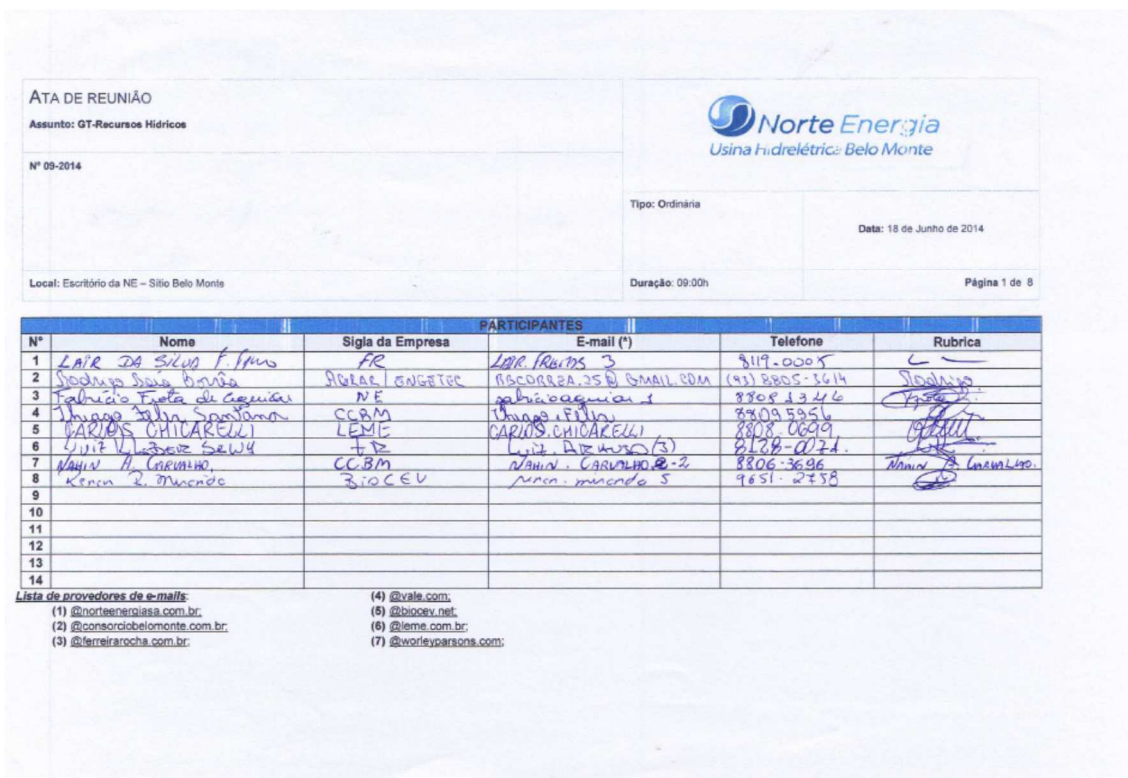 ATA DE REUNIÃO
Assunto: GT-Recursos Hídricos
Norte Energia
Usina Hidrelétrica Belo Monte
Nº 09-2014
Tipo: Ordinária
Data: 18 de Junho de 2014
Local: Escritório da NE – Sítio Belo Monte Duração: 09:00h Página 1 de 8
PARTICIPANTES
Nº Nome Sigla da Empresa E-mail (*) Telefone Rubrica
1 LAIR DA SILVA F. FR LAIR.FREITAS 3 8119-0005
2 Rodrigo AGRAR/ENGETEC @GMAIL.COM (93) 8805-3614 Rodrigo
3 Fabricio Frota de Aguiar NE fabricioaguiar 1 8808 1346
4 Thiago Felix Santana CCBM Thiago.Felix 8809 5956
5 CARLOS CHICARELLI LEME CARLOS.CHICARELLI 8808.0699
6 LUIZ FR LUIZ. (3) 8128-0071.
7 NAHIN A. CARVALHO, CCBM NAHIN.CARVALHO -2 8806-3696 NAHIN A. CARVALHO.
8 R. Miranda BIOCEV miranda 5 9651-2758
9
10
11
12
13
14
Lista de provedores de e-mails:
(1) @norteenergiasa.com.br;
(2) @consorciobelomonte.com.br;
(3) @ferreirarocha.com.br;
(4) @vale.com;
(5) @biocev.net;
(6) @leme.com.br;
(7) @worleyparsons.com;